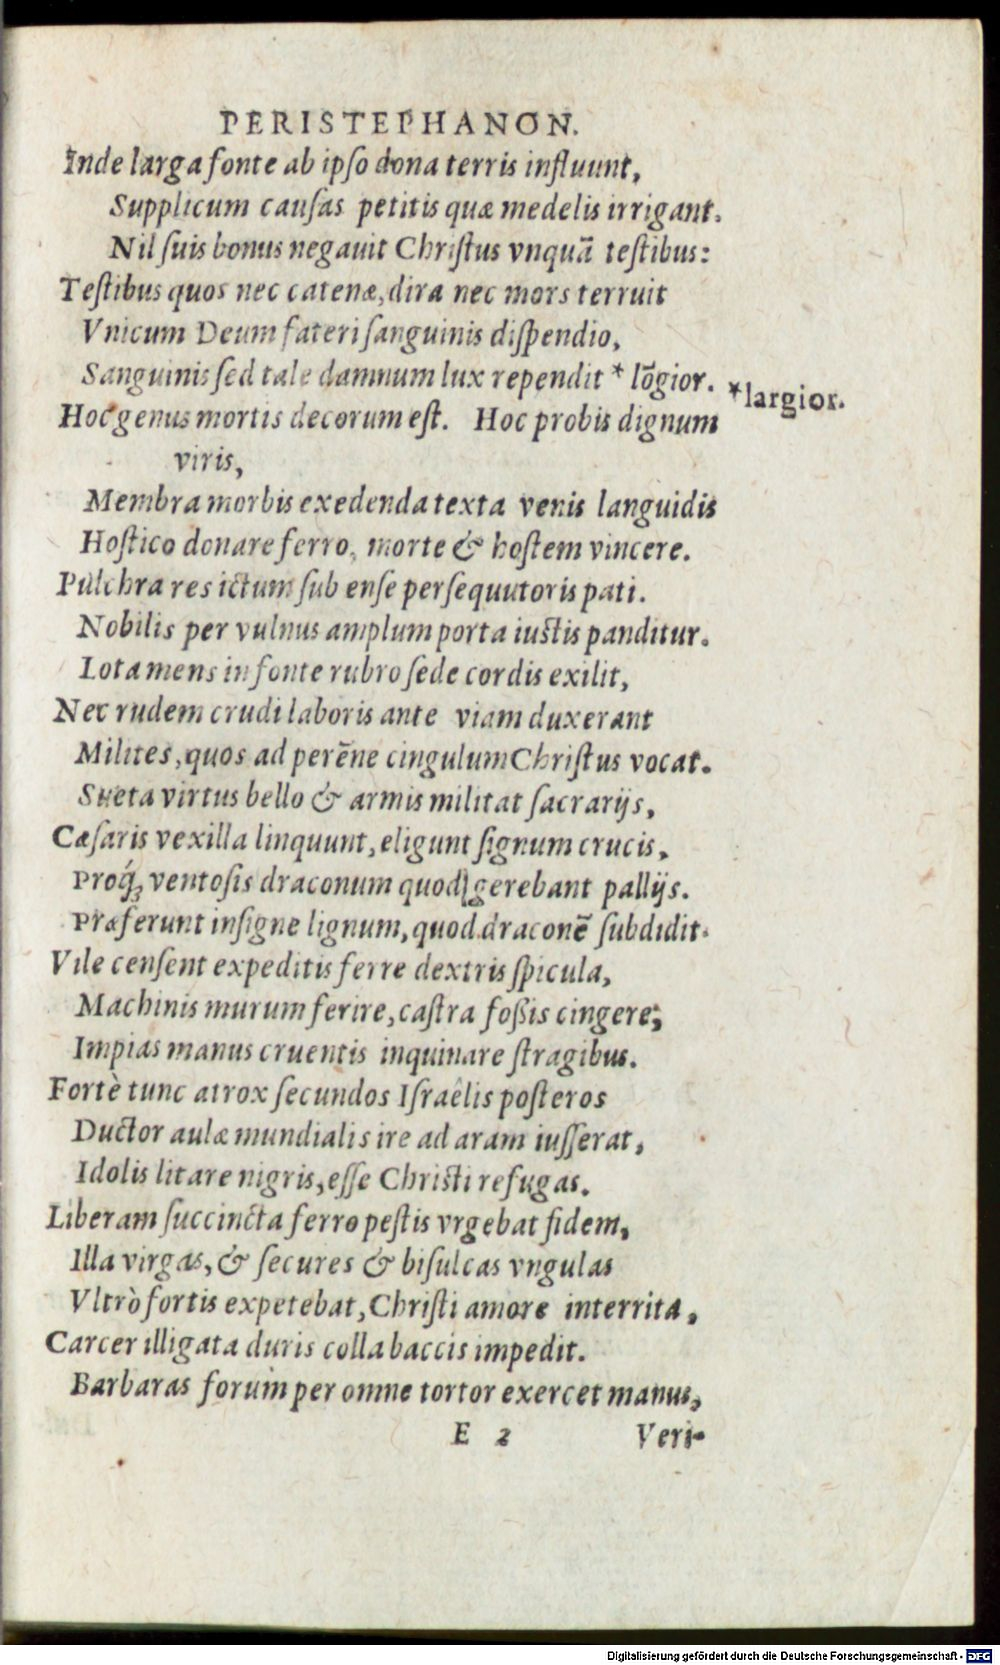 PERISTEPHANON.
Inde larga fonte ab ipso dona terris influunt,
Supplicum causas petitis quæ medelis irrigant.
Nil suis bonus negauit Christus vnquã testibus:
Testibus quos nec catenæ, dira nec mors terruit
Vnicum Deum fateri sanguinis dispendio,
Sanguinis sed tale damnum lux rependit * lõgior. *largior.
Hoc genus mortis decorum est. Hoc probis dignum
viris,
Membra morbis exedenda texta venis languidis
Hostico donare ferro, morte & hostem vincere.
Pulchra res ictum sub ense persequutoris pati.
Nobilis per vulnus amplum porta iustis panditur.
Lota mens in fonte rubro sede cordis exilit,
Nec rudem crudi laboris ante viam duxerant
Milites, quos ad perẽne cingulum Christus vocat.
Sueta virtus bello & armis militat sacrarijs,
Cæsaris vexilla linquunt, eligunt signum crucis,
Proq́; ventosis draconum quod gerebant pallijs.
Præferunt insigne lignum, quod draconẽ subdidit.
Vile censent expeditis ferre dextris spicula,
Machinis murum ferire, castra fossis cingere;
Impias manus cruentis inquinare stragibus.
Fortè tunc atrox secundos Israêlis posteros
Ductor aulæ mundialis ire ad aram iusserat,
Idolis litare nigris, esse Christi refugas.
Liberam succincta ferro pestis vrgebat fidem,
Illa virgas, & secures & bisulcas vngulas
Vltrò fortis expetebat, Christi amore interrita,
Carcer illigata duris colla baccis impedit.
Barbaras forum per omne tortor exercet manus,
E 2 Veri-
Digitalisierung gefördert durch die Deutsche Forschungsgemeinschaft - DFG